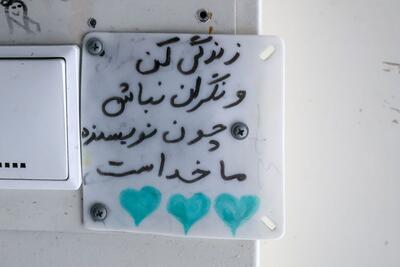 زندگی کن
و نگران نباش
چون نویسنده
ما خداست